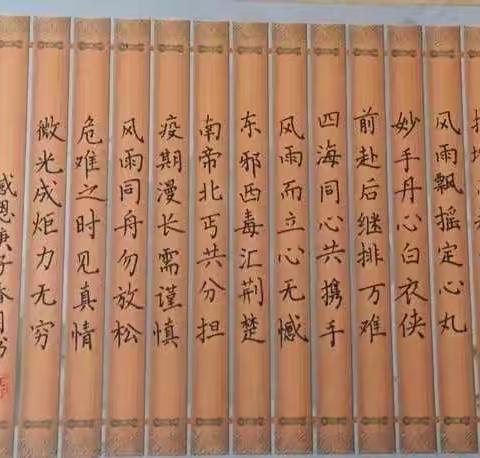 风雨飘摇定心丸
妙手丹心白衣侠
前赴后继排万难
四海同心共携手
风雨而立心无憾
东邪西毒汇荆楚
南帝北丐共分担
疫期漫长需谨慎
风雨同舟勿放松
危难之时见真情
微光成炬力无穷
感恩庚子春月书